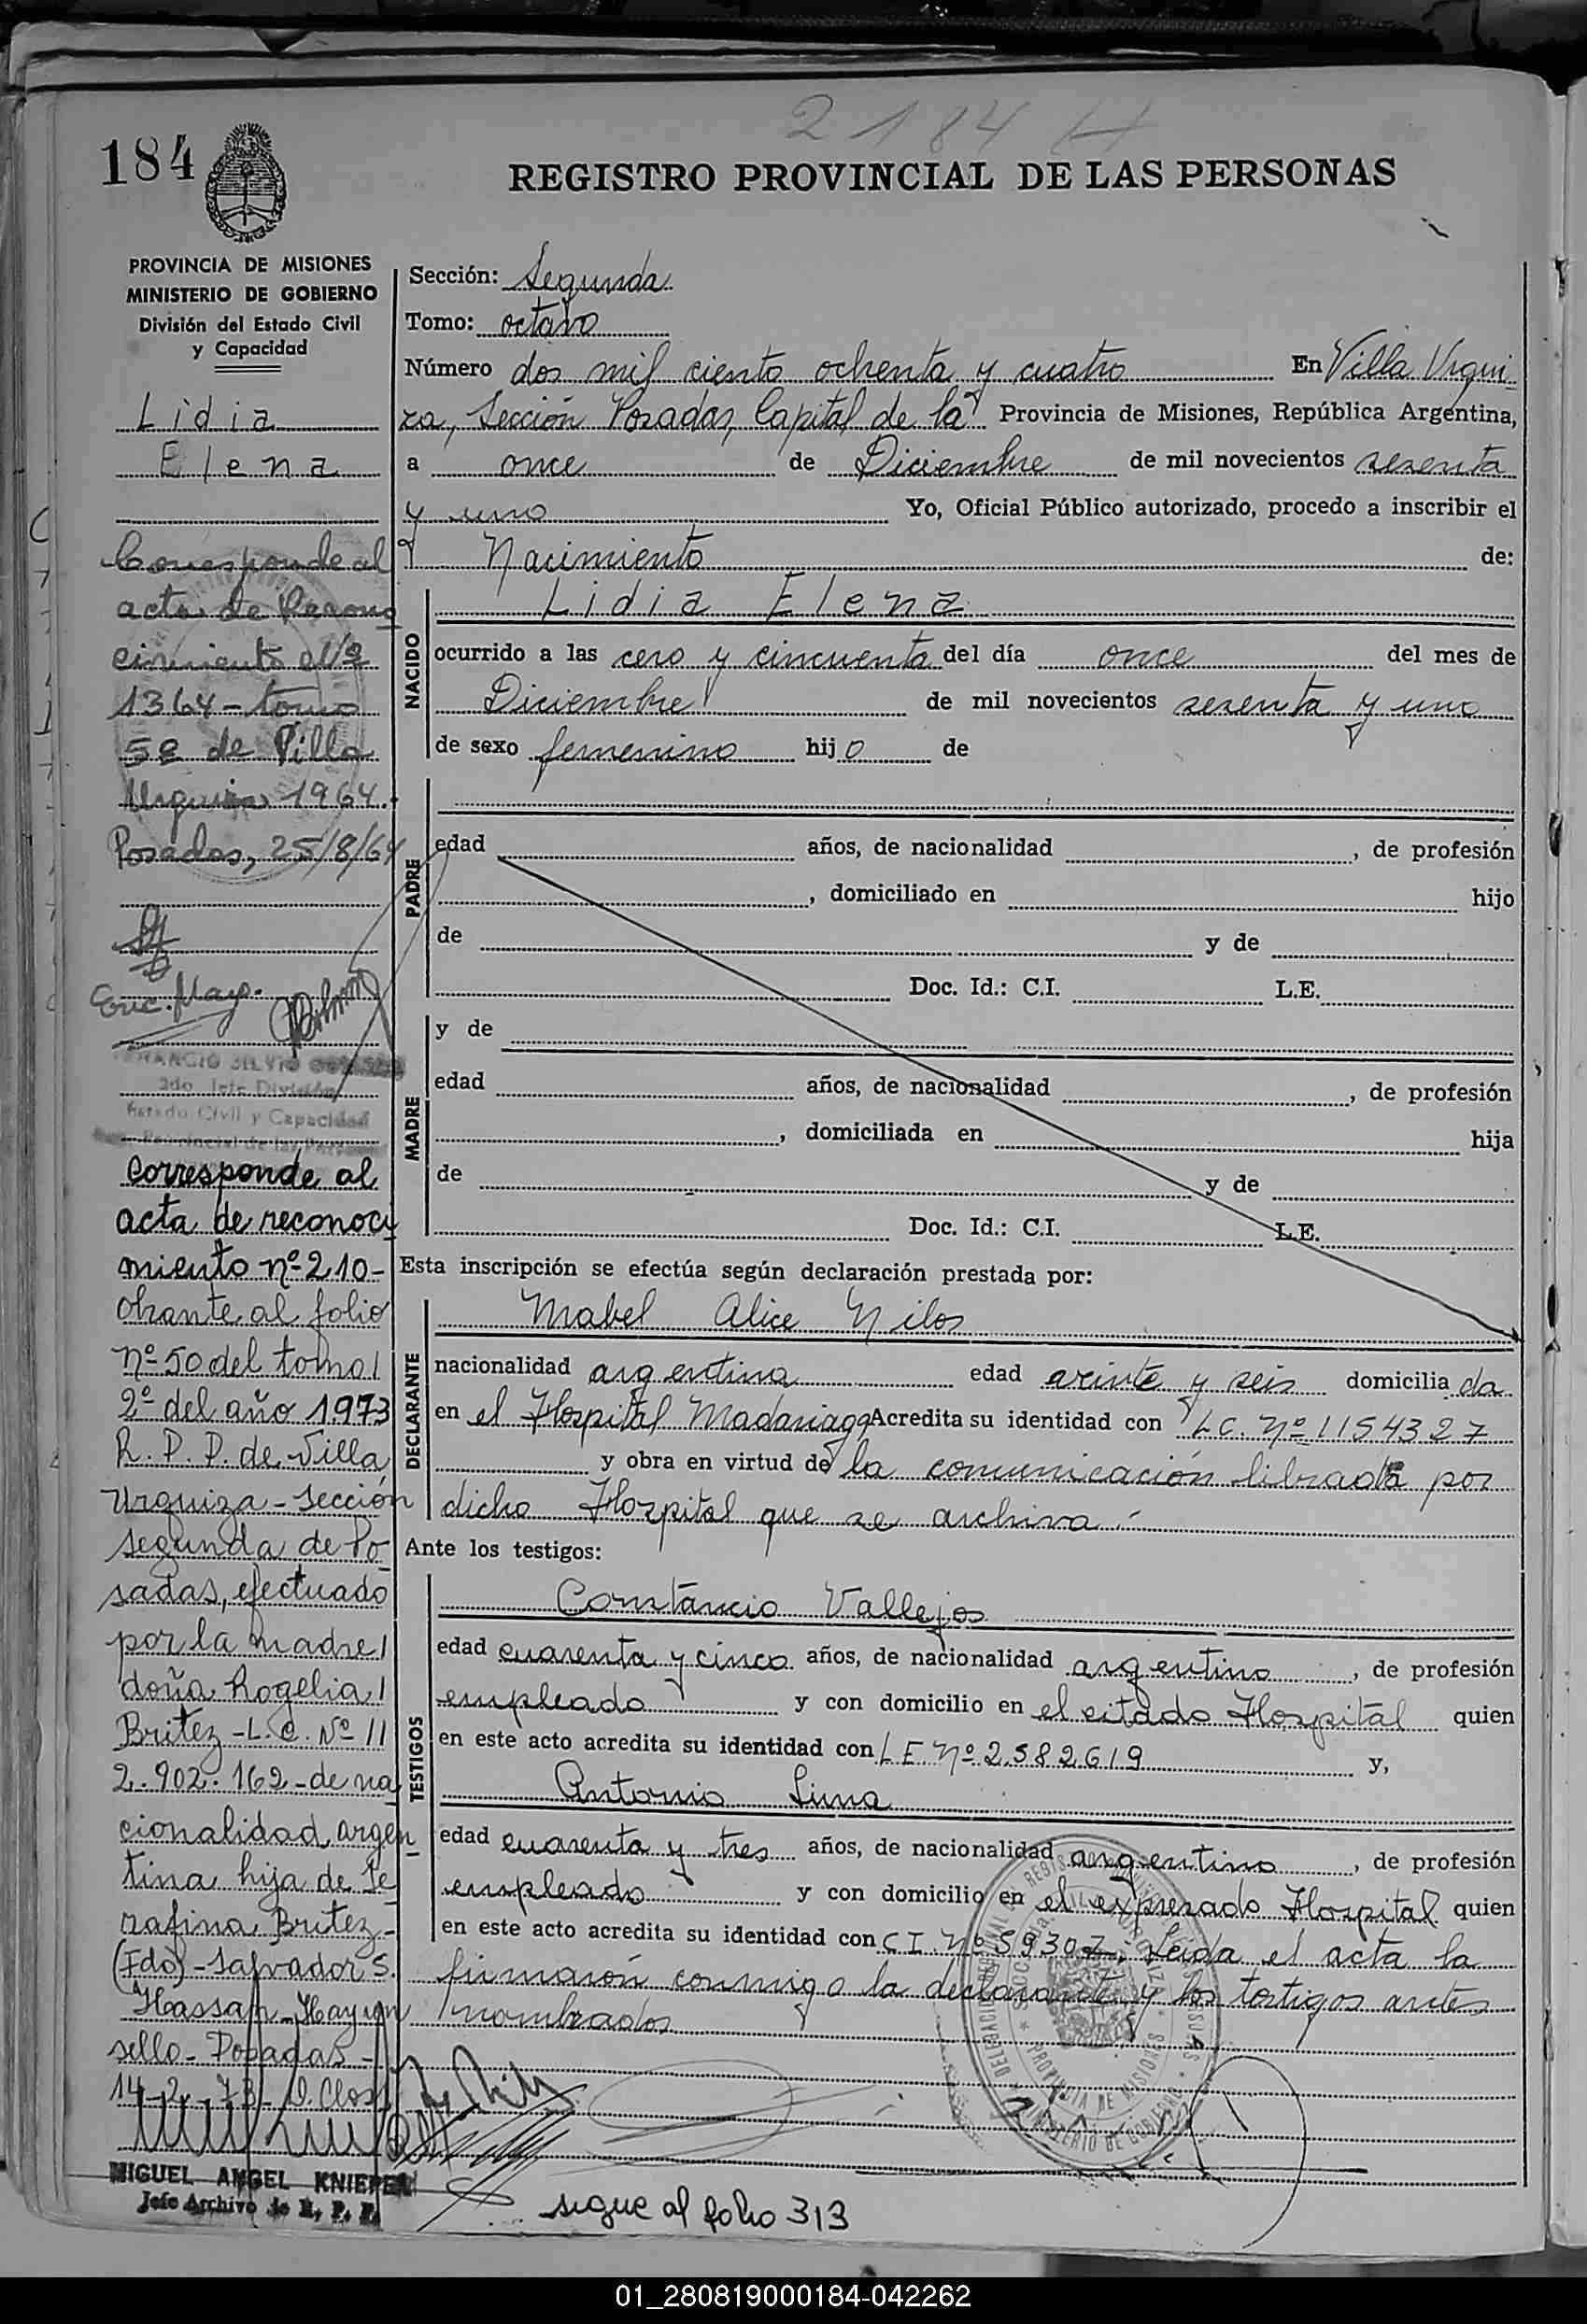 2184
184
REGISTRO PROVINCIAL DE LAS PERSONAS
PROVINCIA DE MISIONES
MINISTERIO DE GOBIERNO
División del Estado Civil
y Capacidad
Lidia
Elena
Corresponde al
acta de Recono
cimiento Nº
1364 - tomo
5º de Villa
Urquiza 1964.
Posadas, 25/8/64
Enc. Mayo.
2do. Jefe División
Estado Civil y Capacidad
Corresponde al
acta de reconoci
miento nº 210-
obrante al folio
nº 50 del tomo
2º del año 1973
R. P. P. de Villa
Urquiza - Sección
segunda de Po
sadas, efectuado
por la madre
doña Rogelia
Britez - L.C. Nº 11
2.902.162 - de na
cionalidad argen
tina hija de Se
rafina Britez -
(Fdo) - Salvador S.
Hassan - Hay un
sello - Posadas -
14-2-73
MIGUEL ANGEL KNIEPER
Jefe Archivo de R. P. P.
Sección: Segunda
Tomo: octavo
Número dos mil ciento ochenta y cuatro En Villa Urqui
za, Sección Posadas, Capital de la Provincia de Misiones, República Argentina,
a once de Diciembre de mil novecientos sesenta
y uno Yo, Oficial Público autorizado, procedo a inscribir el
Nacimiento de:
NACIDO
Lidia Elena
ocurrido a las cero y cincuenta del día once del mes de
Diciembre de mil novecientos sesenta y uno
de sexo femenino hijo de
PADRE
edad años, de nacionalidad , de profesión
, domiciliado en hijo
de y de
Doc. Id.: C.I. L.E.
MADRE
y de
edad años, de nacionalidad , de profesión
, domiciliada en hija
de y de
Doc. Id.: C.I. L.E.
Esta inscripción se efectúa según declaración prestada por:
DECLARANTE
Mabel Alice Nilos
nacionalidad argentina edad veinte y seis domiciliada
en el Hospital Madariaga Acredita su identidad con L C. Nº 1154327
y obra en virtud de la comunicación librada por
dicho Hospital que se archiva.-
Ante los testigos:
TESTIGOS
Constancio Vallejos
edad cuarenta y cinco años, de nacionalidad argentino, de profesión
empleado y con domicilio en el citado Hospital quien
en este acto acredita su identidad con L.E. Nº 2.582.619 y,
Antonio Luna
edad cuarenta y tres años, de nacionalidad argentino, de profesión
empleado y con domicilio en el expresado Hospital quien
en este acto acredita su identidad con C I. Nº 59307. Leída el acta la
firmaron conmigo la declarante y los testigos antes
nombrados
PROVINCIA DE MISIONES
MINISTERIO DE GOBIERNO
sigue al folio 313
01_280819000184-042262